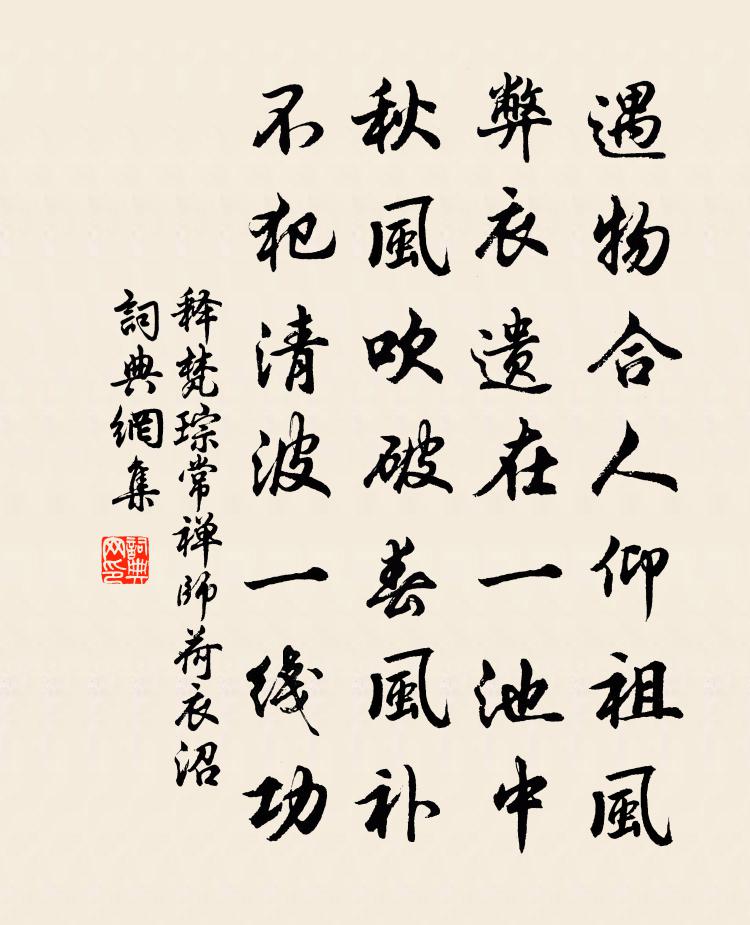 遇物合人仰祖風
弊衣遗在一池中
秋風吹破春風补
不犯清波一线功
释梵琮常禅師荷衣沼
詞典網集
詞典网印